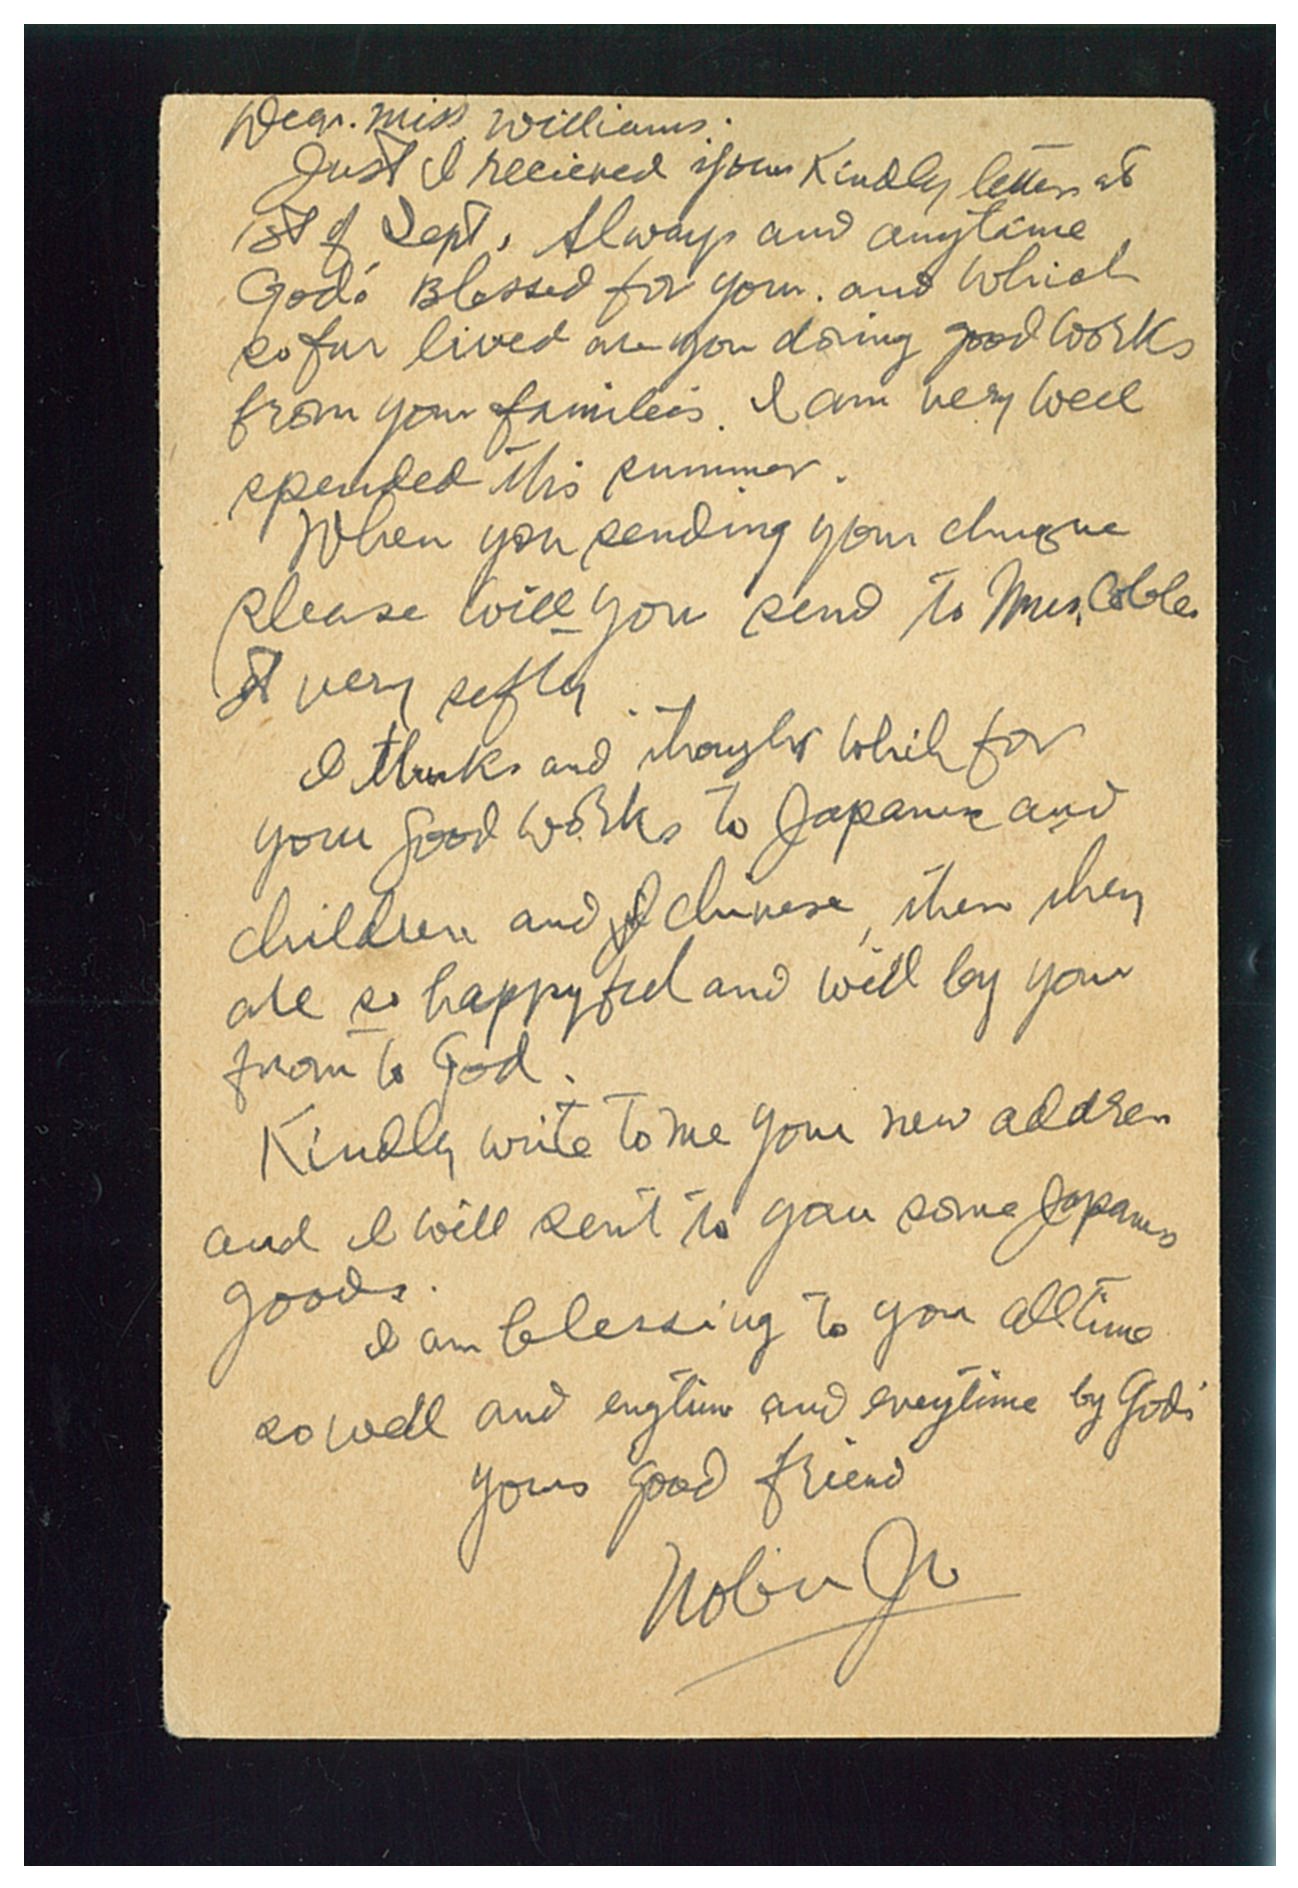 Dear. Miss Williams.
Just I recieved your Kindly letter at
1st of Sept. Always and anytime
God's Blessed for your. and which
so far lived are you doing good works
from your families. I am very well
spended this summer.
When you sending your
please will you send to Mrs. Cobble
It very
I thinks and thought which for
your good works to Japanese and
children and chinese, then they
are so happyful and will by your
from to God.
Kindly write to me your new address
and I will sent to you some Japanese
goods.
I am blessing to you alltime
so well and and everytime by God's
yours good friend